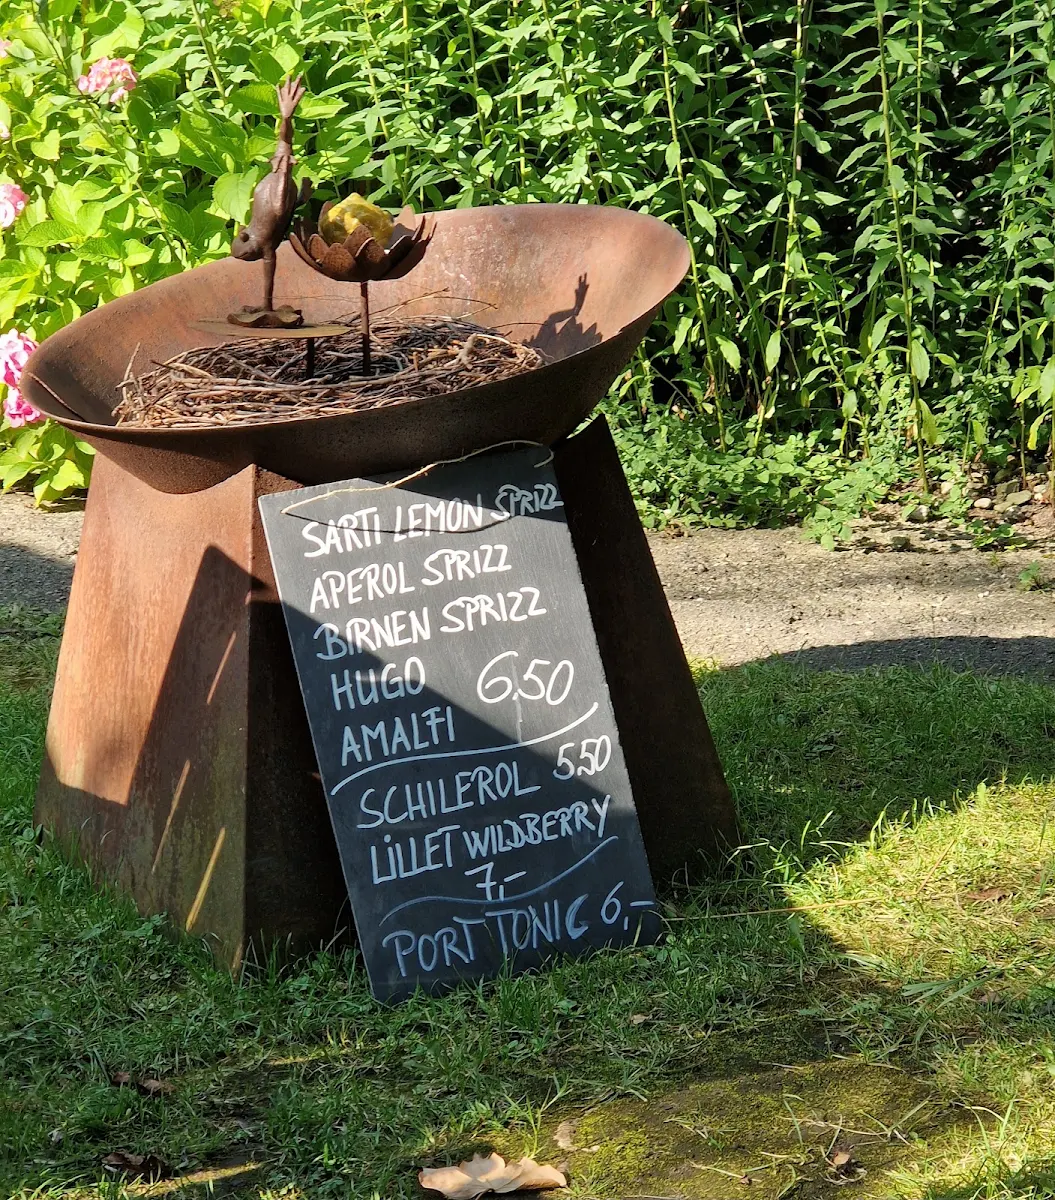 SARTI LEMON SPRIZZ
APEROL SPRIZZ
BIRNEN SPRIZZ
HUGO 6,50
AMALFI
SCHILEROL 5.50
LILLET WILDBERRY
7,-
PORT TONIC 6,-